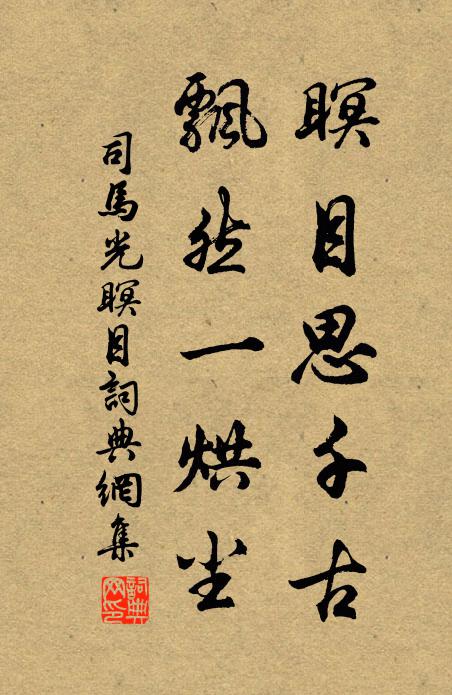 瞑目思千古
飄然一烘尘
司馬光瞑目詞典網集
詞典网印